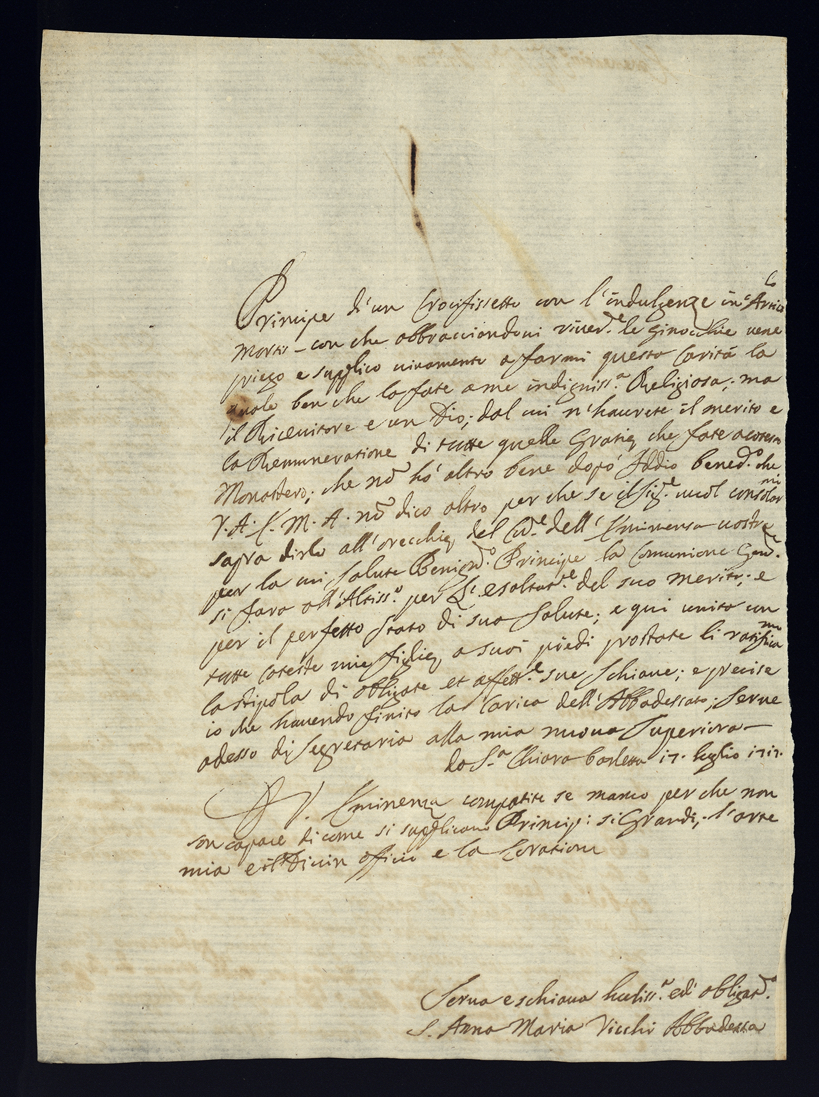 Principe d'un Crocifissetto con l'indulgenze in Artico
mortis – con che abbracciandoni river.e le ginocchie vene
priego e supplico vivamente a farmi questa Carità la
quale ben che la fate a me indigniss.a Religiosa; ma
il Ricevitore e un Dio; dal cui n'havrete il merito e
la Remuneratione di tutte quelle Gratie, che fate a
Monastero; che nō hò altro bene dopò Iddio bened.o che
V. A. E. M. A. nō dico altro per che se il Sig.e vuol consolarmi
sapra dirlo all'orecchie del Cu.e dell'Eminensa vostra
per la cui salute Benign.o Principe la Comunione Gen.e
si fara all'Altiss.o per L'esaltat.e del suo merito; e
per il perfetto stato di sua salute; e qui unita con
tutte coteste mie figlie, a suoi piedi prostate li ratifica
la stipola di obligate et affett.e sue schiave; e precise
io che havendo finito la Carica dell'Abbadessato; serve
adesso di Segretaria alla mia nuova Superiora –
da S.a Chiara Barletta 17. luglio 1717.
V. Eminenza compatite se manco per che non
son capace di come si supplicano Principi: si Grandi; l'arte
mia e il Divin officio e la Loratione
Serva e schiava humliss.a ed' obligat.a
S. Anna Maria Vicchi Abbadessa